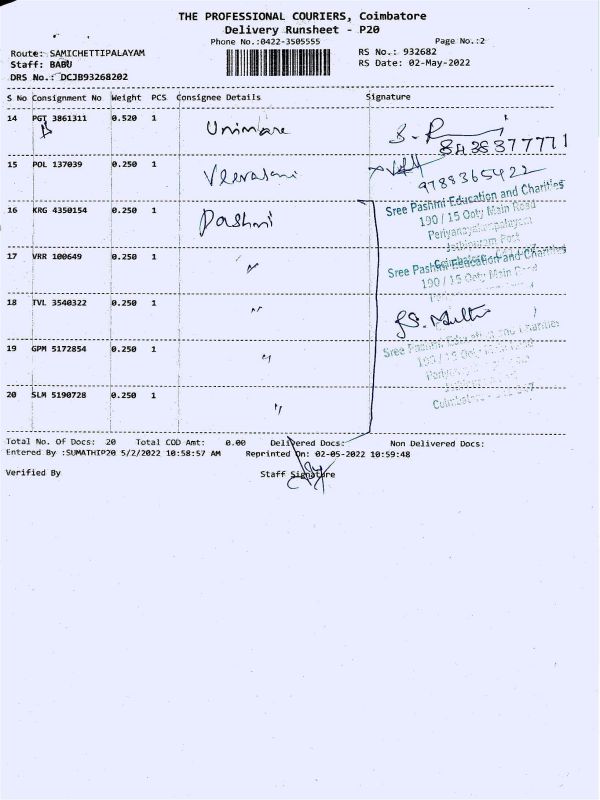 THE PROFESSIONAL COURIERS, Coimbatore
Delivery Runsheet - P20
Phone No.:0422-3505555
Page No.:2
Route: SAMICHETTIPALAYAM
RS No.: 932682
Staff: BABU
RS Date: 02-May-2022
DRS No.: DCJB93268202
S No Consignment No Weight PCS Consignee Details Signature
14 PGT 3861311 0.520 1
15 POL 137039 0.250 1
9788365422
16 KRG 4350154 0.250 1 Dashmi
Sree Pashmi Education and Charities
190 / 15 Ooty Main Road
17 VRR 100649 0.250 1 "
Sree Pashmi Education and Charities
190 / 15 Ooty Main Road
18 TVL 3540322 0.250 1 "
19 GPM 5172854 0.250 1 "
20 SLM 5190728 0.250 1 "
Total No. Of Docs: 20 Total COD Amt: 0.00 Delivered Docs: Non Delivered Docs:
Entered By :SUMATHIP20 5/2/2022 10:58:57 AM Reprinted On: 02-05-2022 10:59:48
Verified By Staff Signature